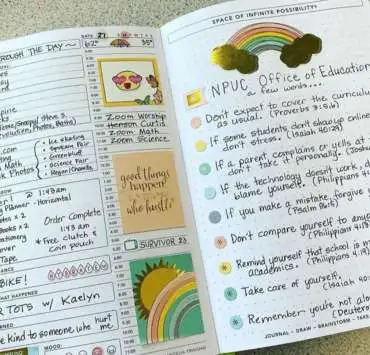 DATE 21
THROUGH THE DAY
62°
35°
Zoom Worship
Henson Curtis
Zoom Math
Zoom Science
.com
• Ice skating
• Spream Fair
• Greenbluff
• Science Fair
@ 11:43am
Planner - Horizontal
x 2
Books x 2
Stationery
Tape
Order Complete
11:43 am
* Free clutch &
coin pouch
good things
happen
who hustle
SURVIVOR
HYDRATED
BIKE!
WHAT HAPPENED
R TOTS w/ Kaelyn
be kind to someone who hurt
me
MOOD:
SPACE OF INFINITE POSSIBILITY
NPUC Office of Education
a few words...
Don't expect to cover the curriculum
as usual. (Proverbs 3:5,6)
If some students don't show up online
don't stress. (Isaiah 40:29)
If a parent complains or yells at
don't take it personally. (Joshua
If the technology doesn't work, d
blame yourself. (Philippians 4:
If you make a mistake forgive y
(Psalm 86:5)
Don't compare yourself to anyone
(Philippians 4:13
Remind yourself that school is m
academics. (Philippians 4:19
Take care of yourself.
(Isaiah 40:
Remember you're not alone
(Deuter
JOURNAL • DRAW • BRAINSTORM • TAKE